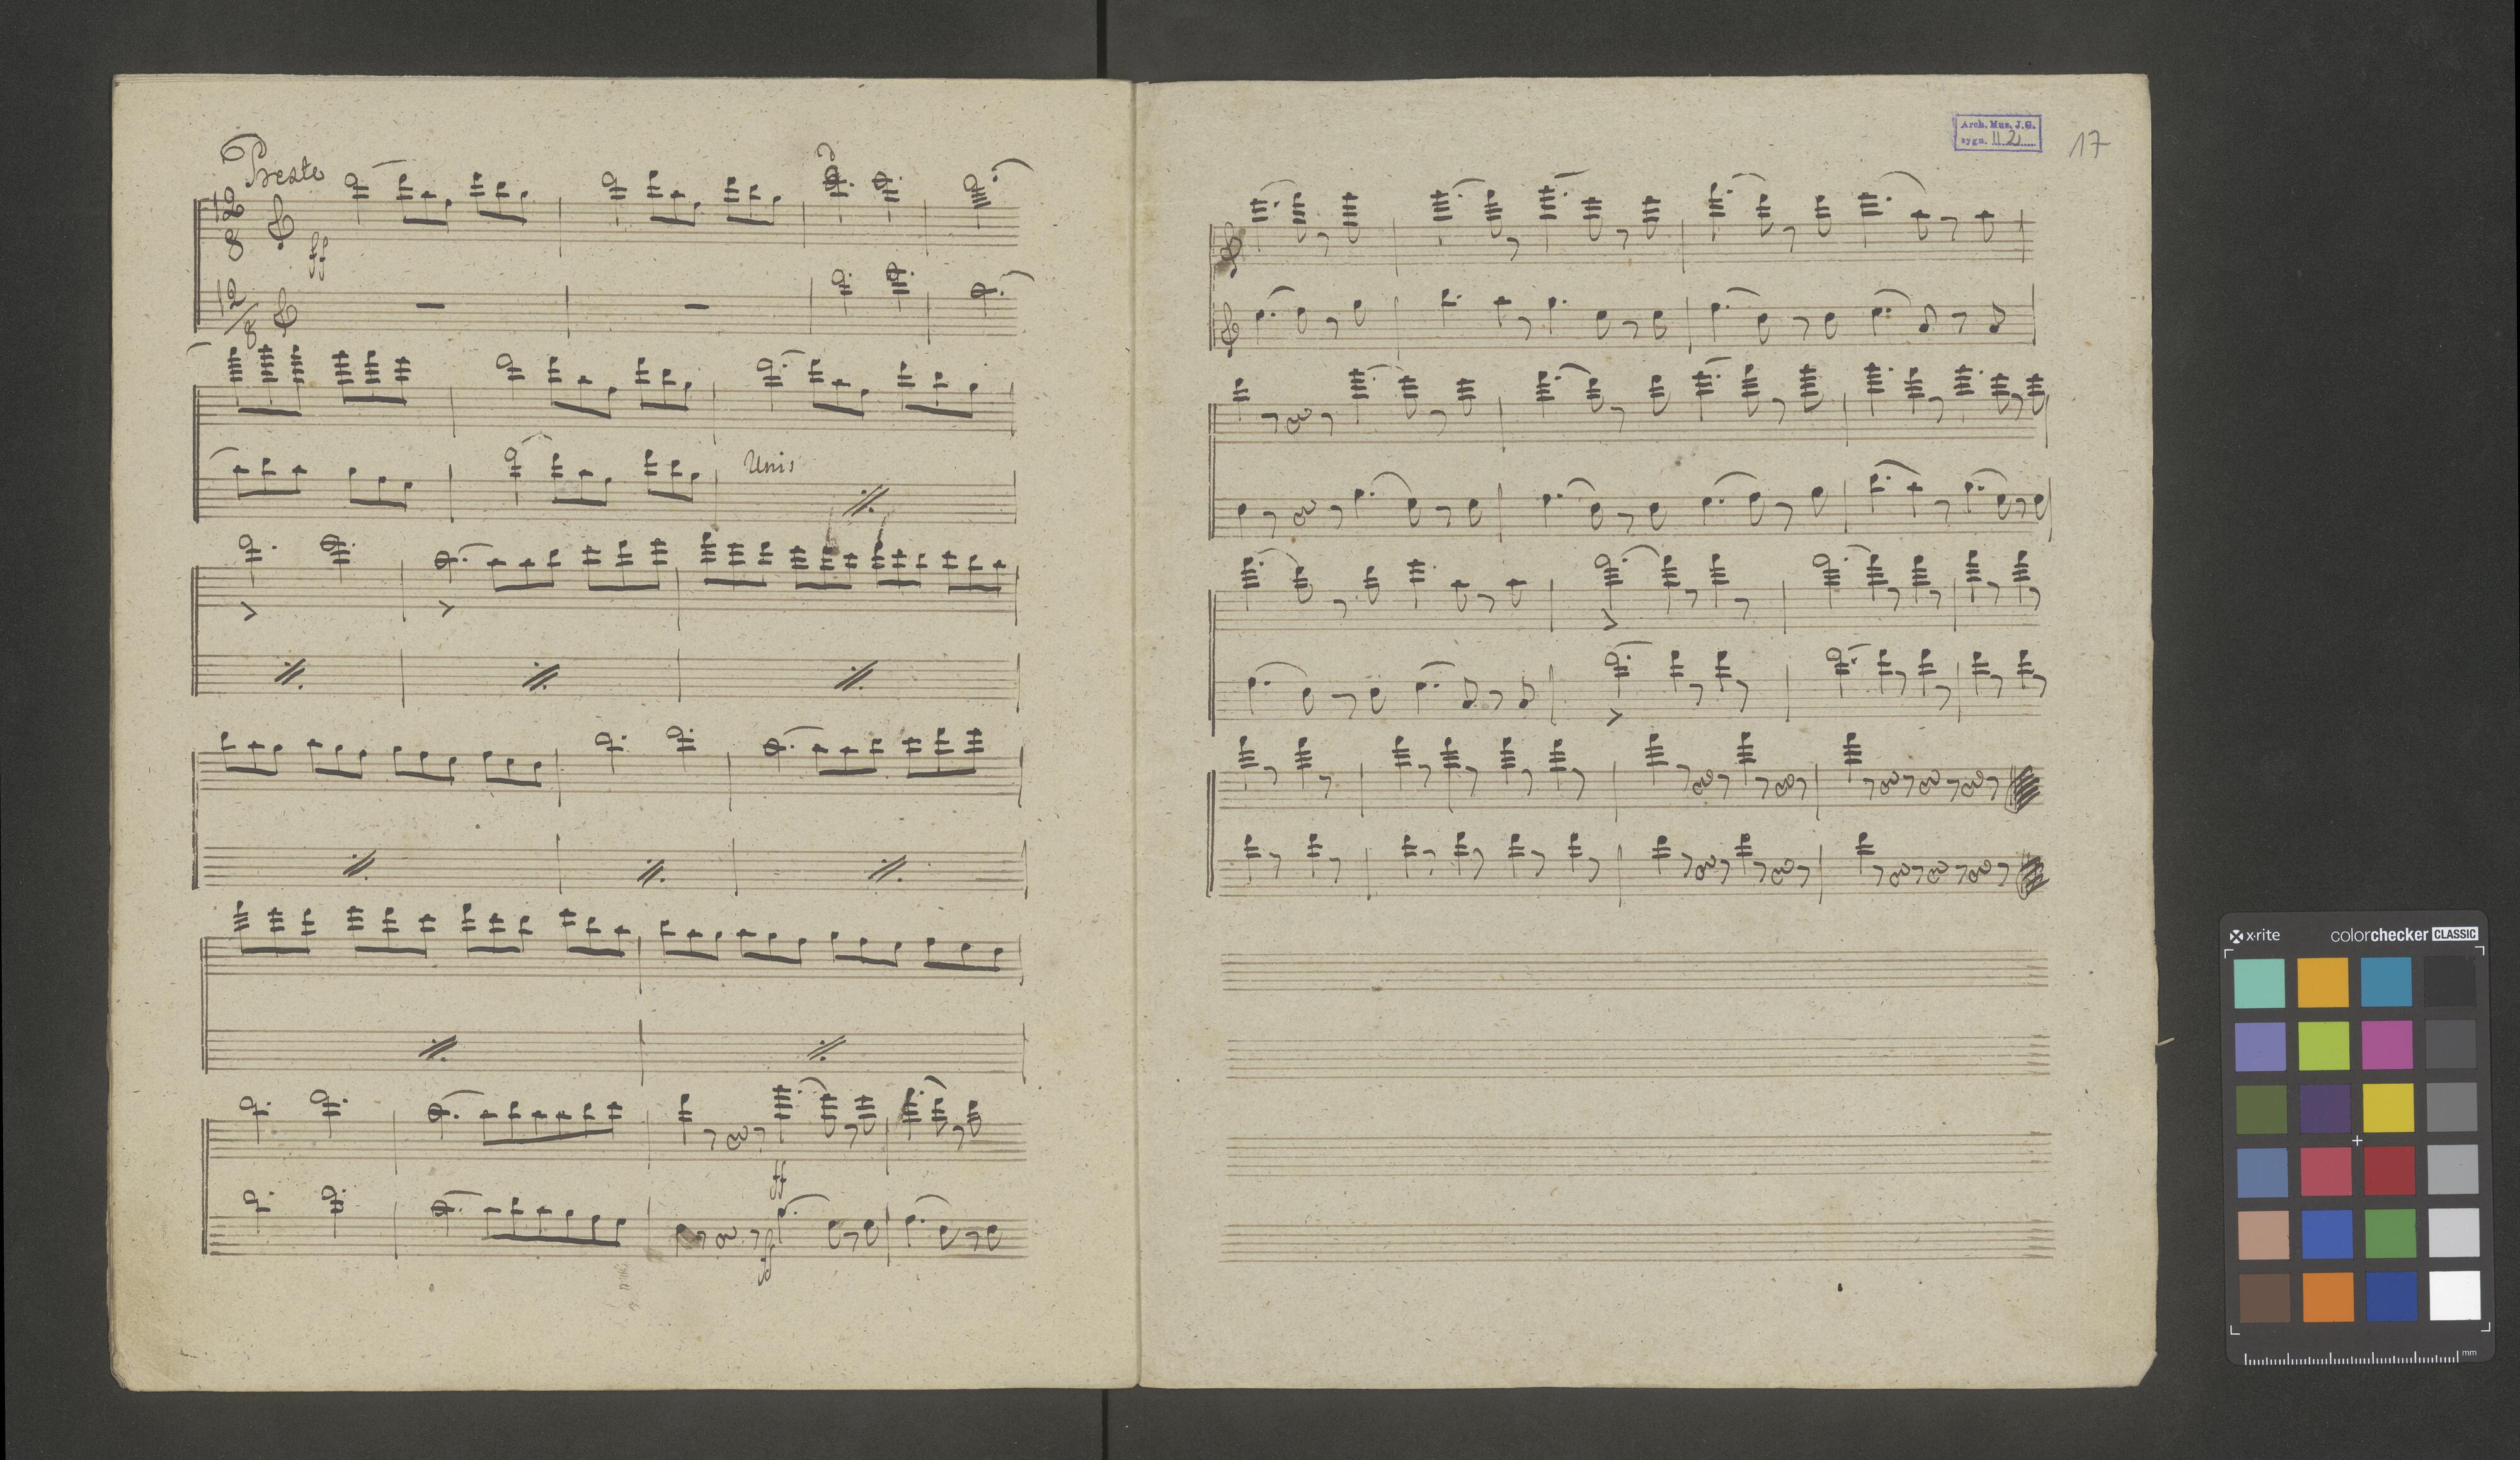 Presto
12
8
ff
12/8
Unis
ff
ff
Arch. Mus. J.G.
sygn. II 2
17
x·rite colorchecker CLASSIC
mm